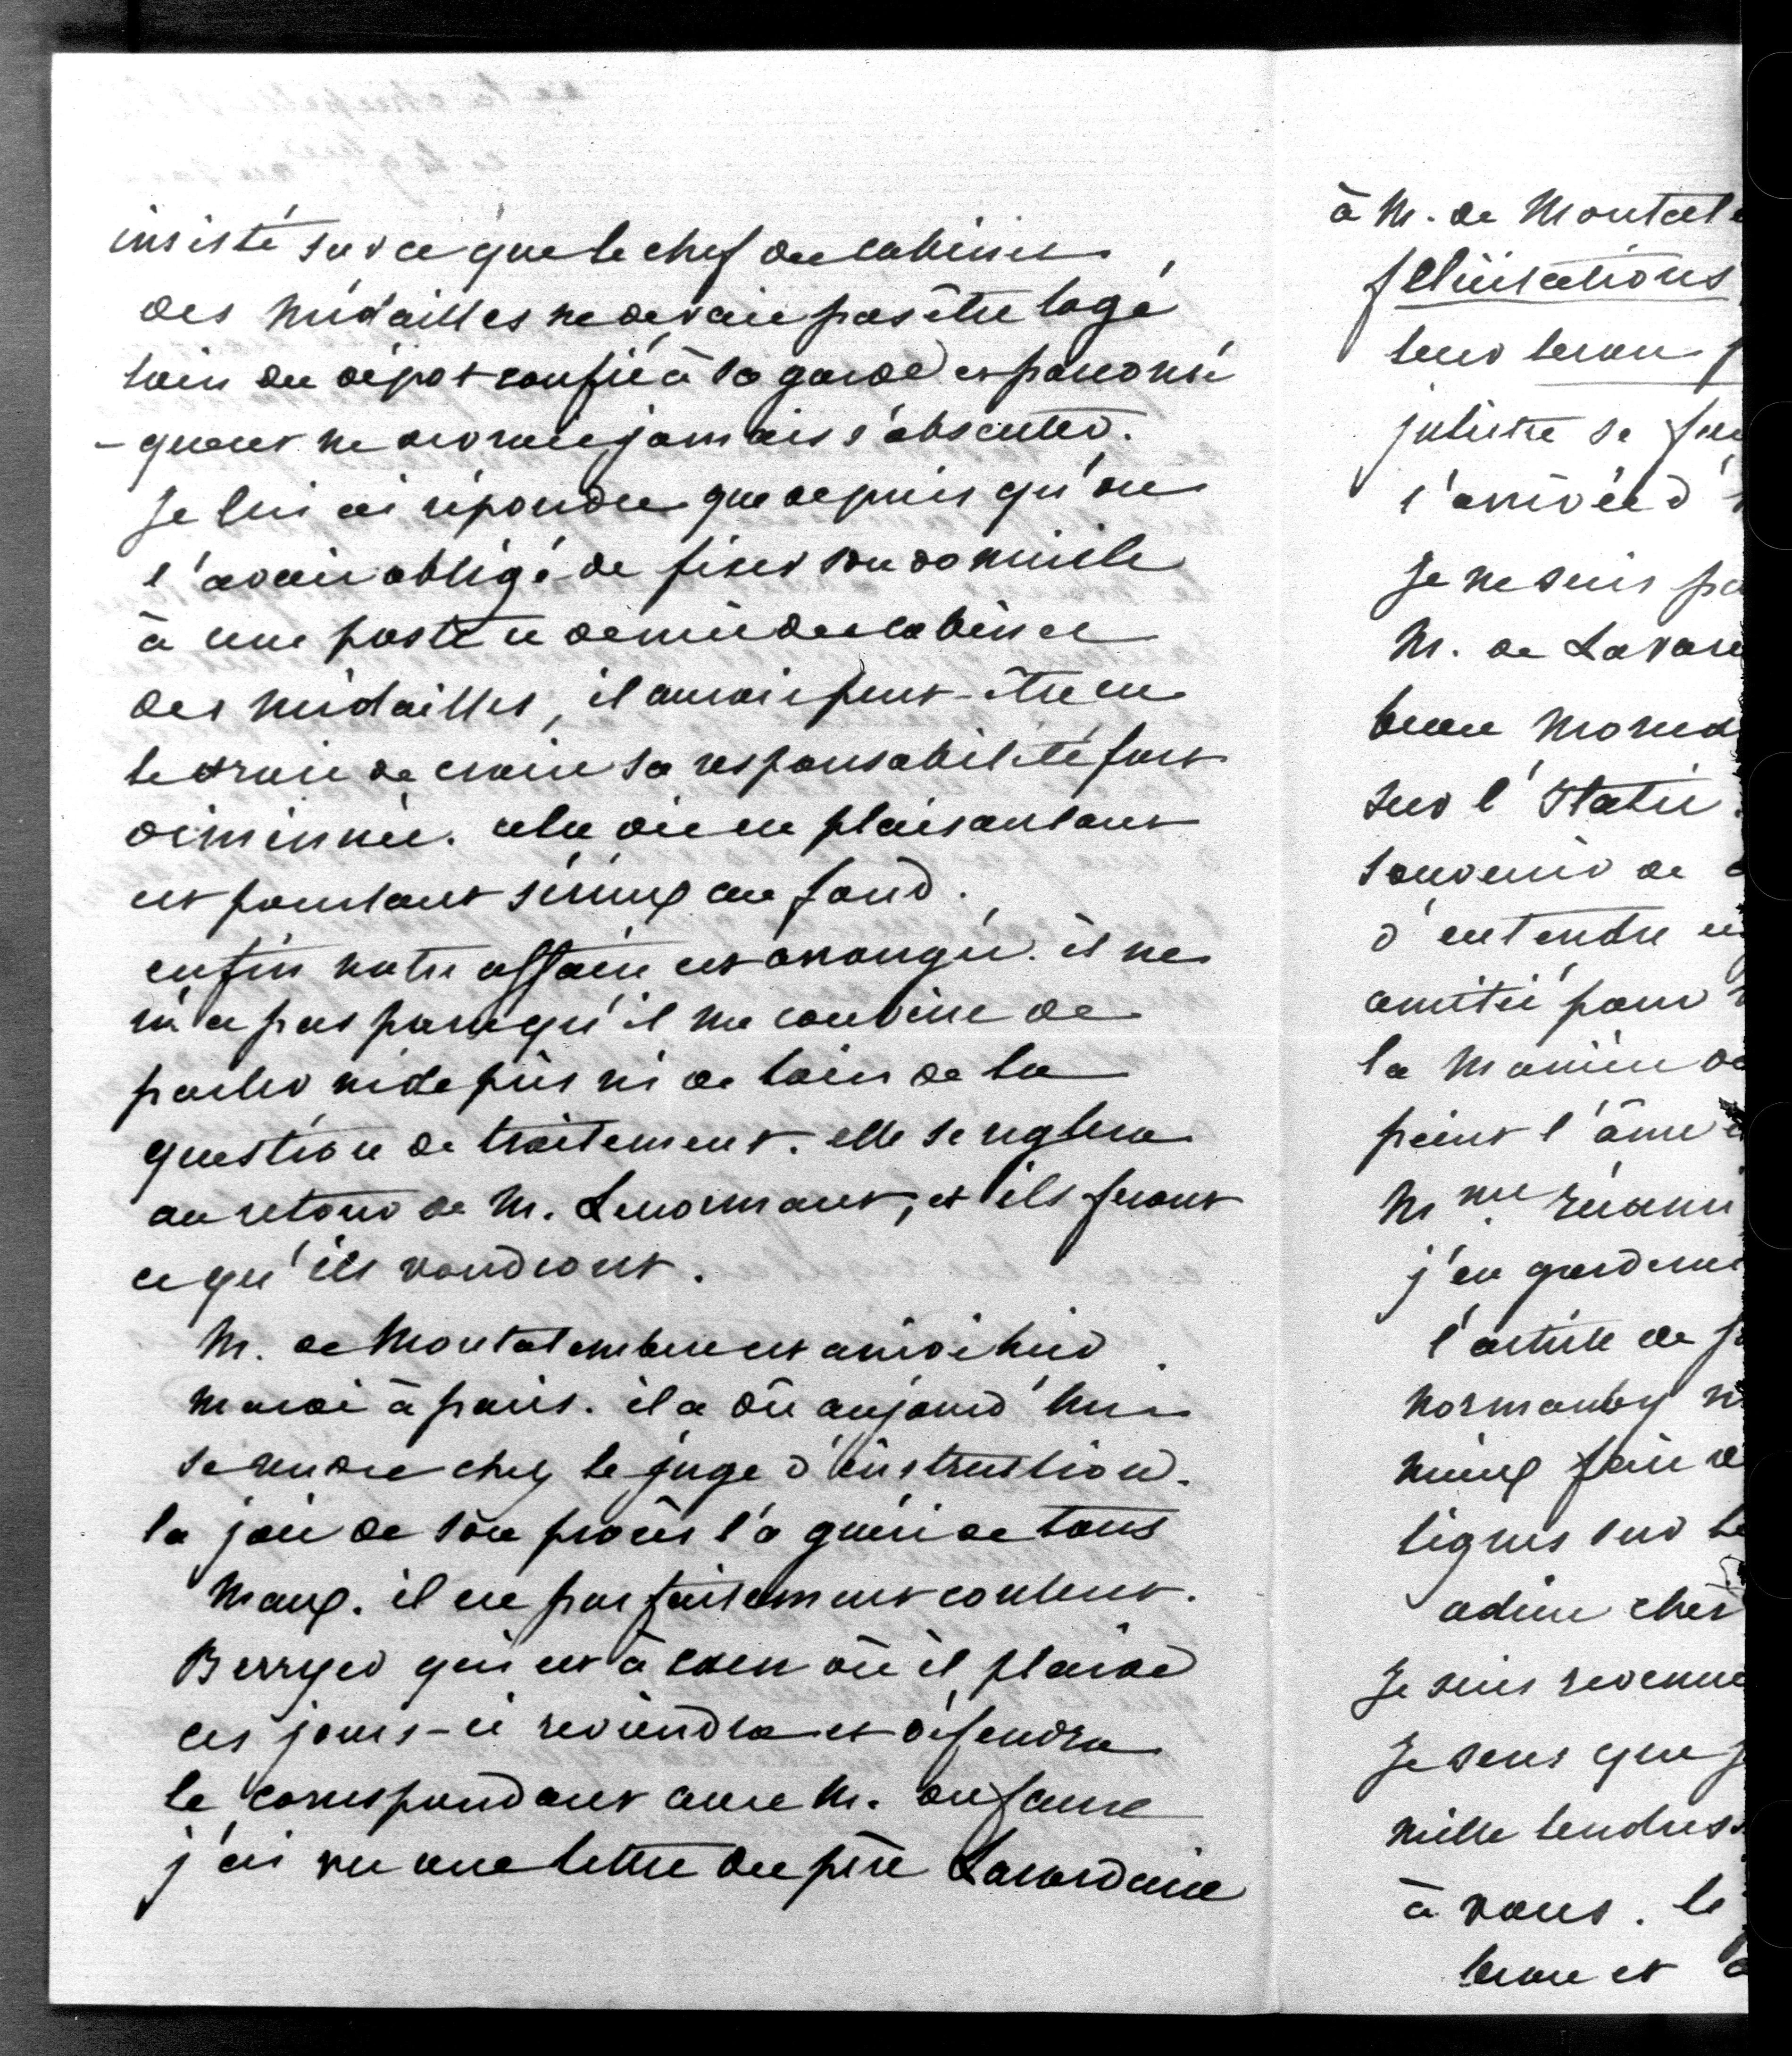 insisté sur ce que le chef du cabinet
des médailles ne devait pas être logé
loin du dépot confié à sa garde et par consé
-quent ne devrait jamais s'absenter.
Je lui ai répondu que depuis qu'on
l'avait obligé de fixer son domicile
à une poste et demie du cabinet
des médailles, il aurait peut-être eu
le droit de croire sa responsabilité fort
diminuée. cela dit en plaisantant
et pourtant sérieux au fond.
enfin notre affaire est arrangée. il ne
m'a pas paru qu'il me convint de
parler ni de près ni de loin de la
question de traitement. elle se reglera
au retour de M. Lenormant, et ils feront
ce qu'ils voudront.
M. de Montalembert est arrivé hier
mardi à paris. il a dû aujourd'hui
se rendre chez le juge d'instruction.
la joie de son procès l'a guéri de tous
maux. il est parfaitement content.
Berryer qui est à caen où il plaide
ces jours-ci reviendra et défendra
le correspondant avec M. dufaure
j'ai vu une lettre du père Lacordaire
à M. de Montal
félicitations
leur
juliette se
l'arrivée d'
Je ne suis pa
M. de
beau
sur l'
souvenir de
d'entendre
amitié pour
la manière de
peint l'âme
Mme récami
j'en
l'article de
normanby
mieux faire
lignes sur le
adieu cher
Je suis revenue
Je sens que j
mille tendress
à vous. le
et